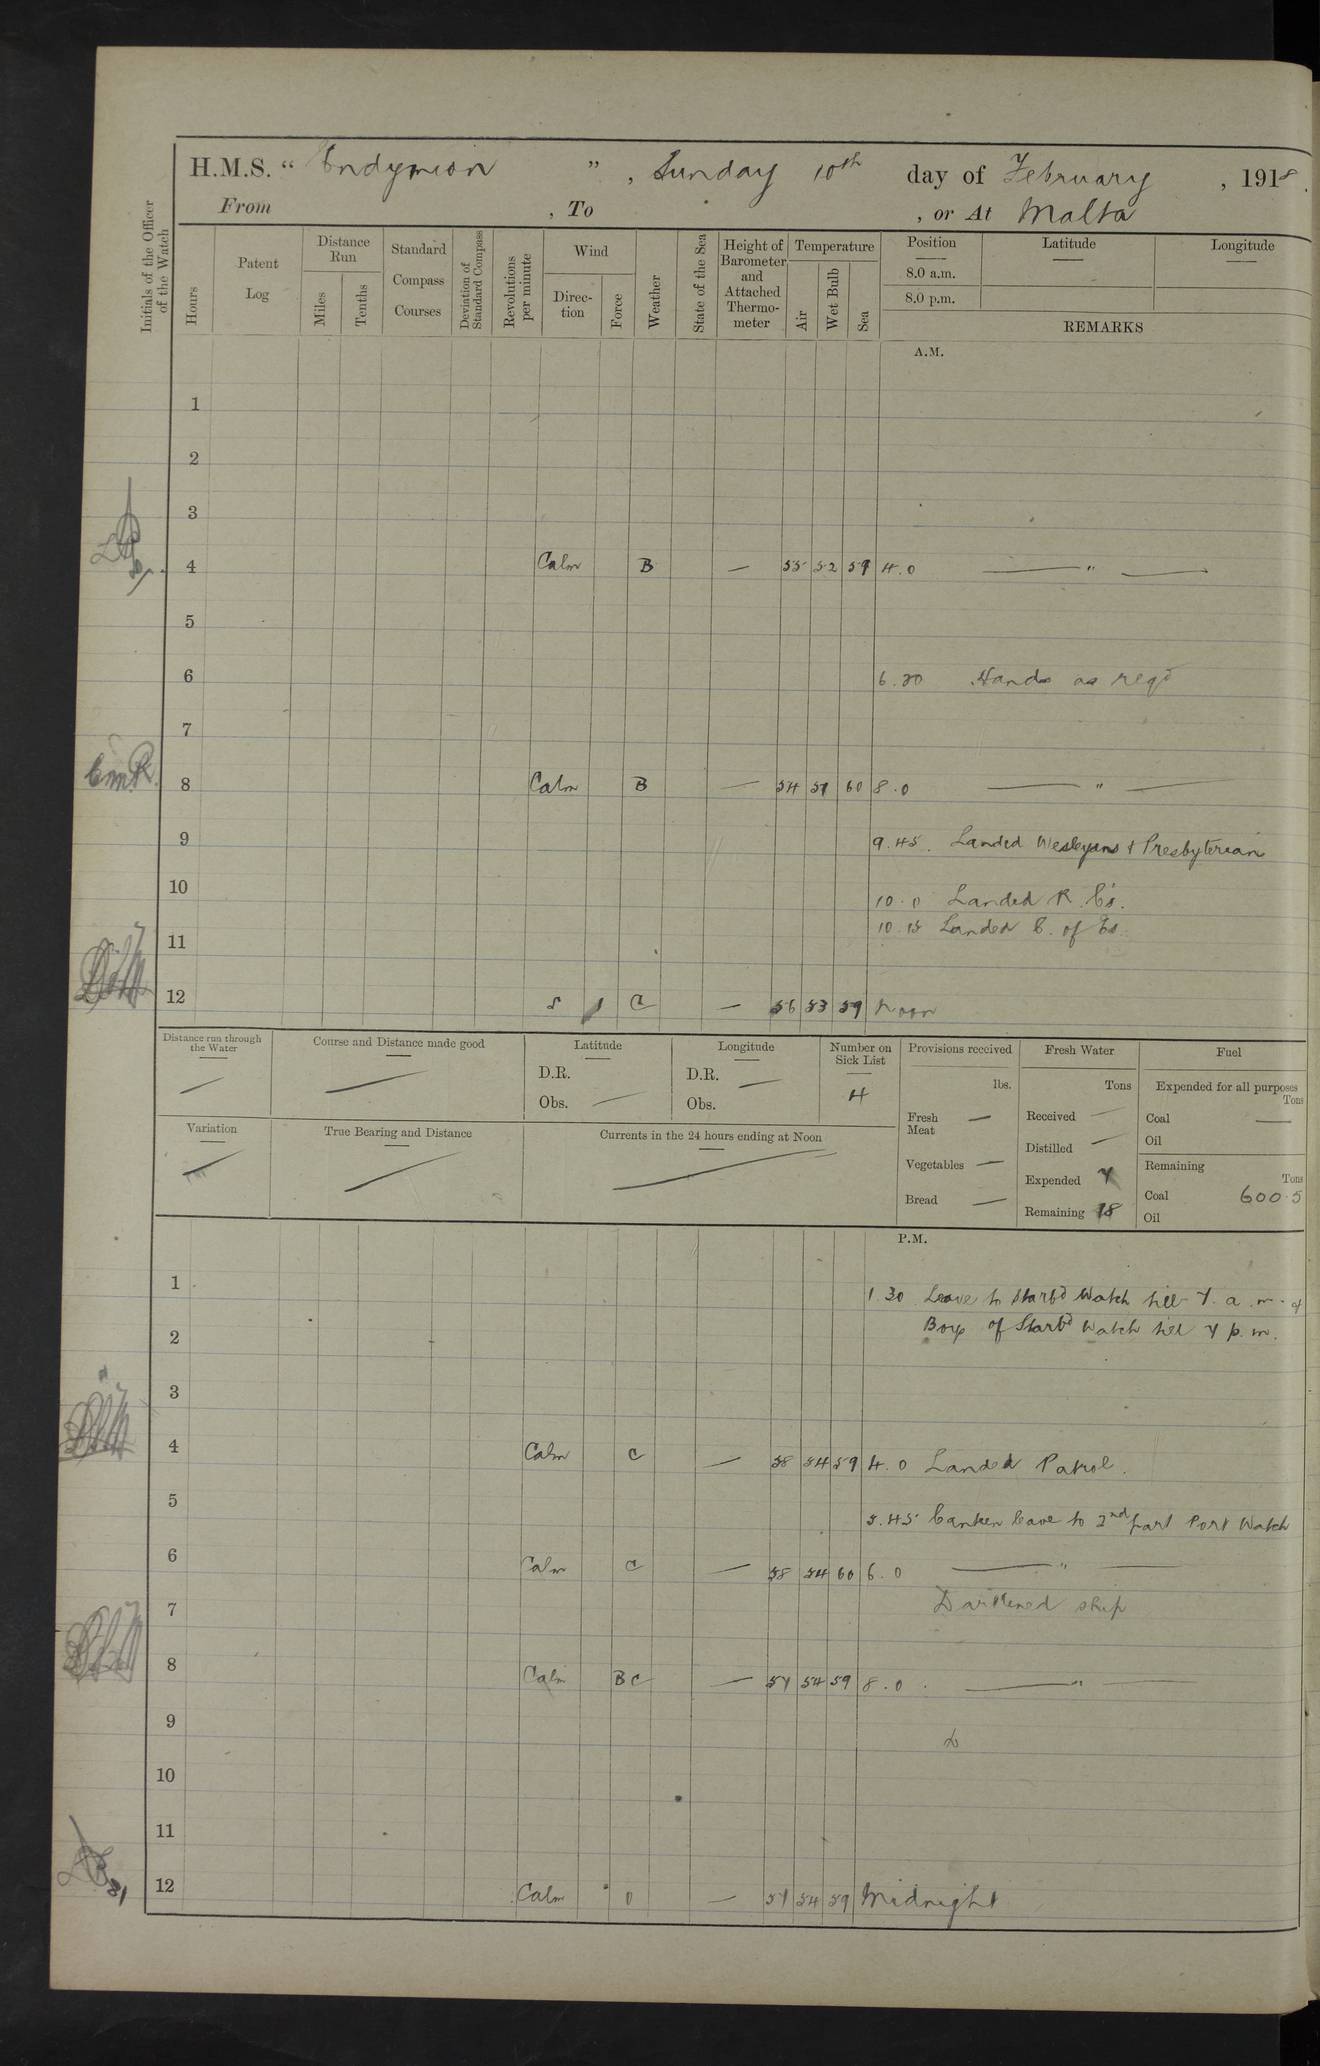 H.M.S. " Endymion ", Sunday 10th day of February, 1918.
From , To , or At Malta
Initials of the Officer of the Watch
Hours
Patent Log
Distance Run
Miles
Tenths
Standard Compass Courses
Deviation of Standard Compass
Revolutions per minute
Wind
Direc-tion
Force
Weather
State of the Sea
Height of Barometer and Attached Thermo-meter
Temperature
Air
Wet Bulb
Sea
Position
8.0 a.m.
8.0 p.m.
Latitude
Longitude
REMARKS
A.M.
1
2
3
4 Calm B — 55 52 59 4.0 — " —
5
6 6.20 Hands as reqd
7
8 Calm B — 54 51 60 8.0 — " —
9 9.45. Landed Wesleyans & Presbyterian
10 10.0 Landed R. C's.
10.15 Landed C. of Es.
11
12 S 1 C — 56 53 59 Noon
Distance run through the Water
—
Course and Distance made good
—
Latitude
D.R.
Obs. —
Longitude
D.R. —
Obs.
Number on Sick List
4
Provisions received
lbs.
Fresh Meat —
Vegetables —
Bread —
Fresh Water
Tons
Received —
Distilled —
Expended 7
Remaining 18
Fuel
Expended for all purposes
Tons
Coal —
Oil
Remaining
Tons
Coal 600.5
Oil
Variation
—
True Bearing and Distance
—
Currents in the 24 hours ending at Noon
—
P.M.
1 1.30 Leave to Starbd Watch till 7. a.m. &
Boys of Starbd Watch till 7 p.m.
2
3
4 Calm C — 58 54 59 4.0 Landed Patrol.
5 5.45 Canteen leave to 2nd part Port Watch
6 Calm C — 58 54 60 6.0 — " —
7 Darkened ship
8 Calm BC — 57 54 59 8.0. — " —
9
10
11
12 Calm O — 57 54 59 Midnight